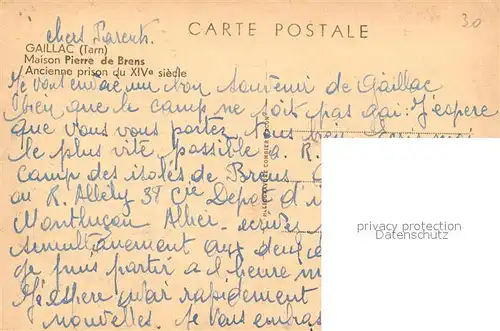 30
chers Parents.
CARTE POSTALE
GAILLAC (Tarn)
Maison Pierre de Brens
Ancienne prison du XIVe siècle
Je vous envoie un bon souvenir de Gaillac
bien que le camp ne soit pas gai. J'espere
que vous vous portez tous bien
le plus vite possible a R.
camp des isolés de Brens.
ou R. Allély 38 Cie Depot d'i
Montluçon Allier. ecrivez
simultanement aux deux
je puis partir a l heure
J'espere qu'au rapidement
nouvelles. Je vous embras
privacy protection
Datenschutz